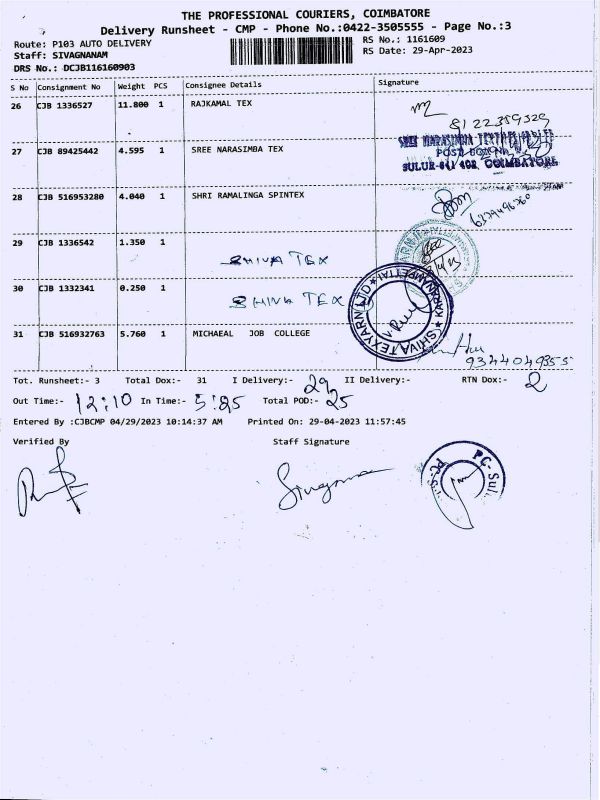 THE PROFESSIONAL COURIERS, COIMBATORE
Delivery Runsheet - CMP - Phone No.:0422-3505555 - Page No.:3
Route: P103 AUTO DELIVERY RS No.: 1161609
Staff: SIVAGNANAM RS Date: 29-Apr-2023
DRS No.: DCJB116160903
S No Consignment No Weight PCS Consignee Details Signature
26 CJB 1336527 11.800 1 RAJKAMAL TEX
8122359529
27 CJB 89425442 4.595 1 SREE NARASIMBA TEX
SULUR-641 402, COIMBATORE
28 CJB 516953280 4.040 1 SHRI RAMALINGA SPINTEX
29 CJB 1336542 1.350 1 SHIVA TEX
30 CJB 1332341 0.250 1 SHIVA TEX
SHIVA TEXYARN LTD KARUMPETTAI
31 CJB 516932763 5.760 1 MICHAEAL JOB COLLEGE
9344049355
Tot. Runsheet:- 3 Total Dox:- 31 I Delivery:- 29 II Delivery:- RTN Dox:- 2
Out Time:- 12:10 In Time:- 5:25 Total POD:- 25
Entered By :CJBCMP 04/29/2023 10:14:37 AM Printed On: 29-04-2023 11:57:45
Verified By Staff Signature
PC-Sul